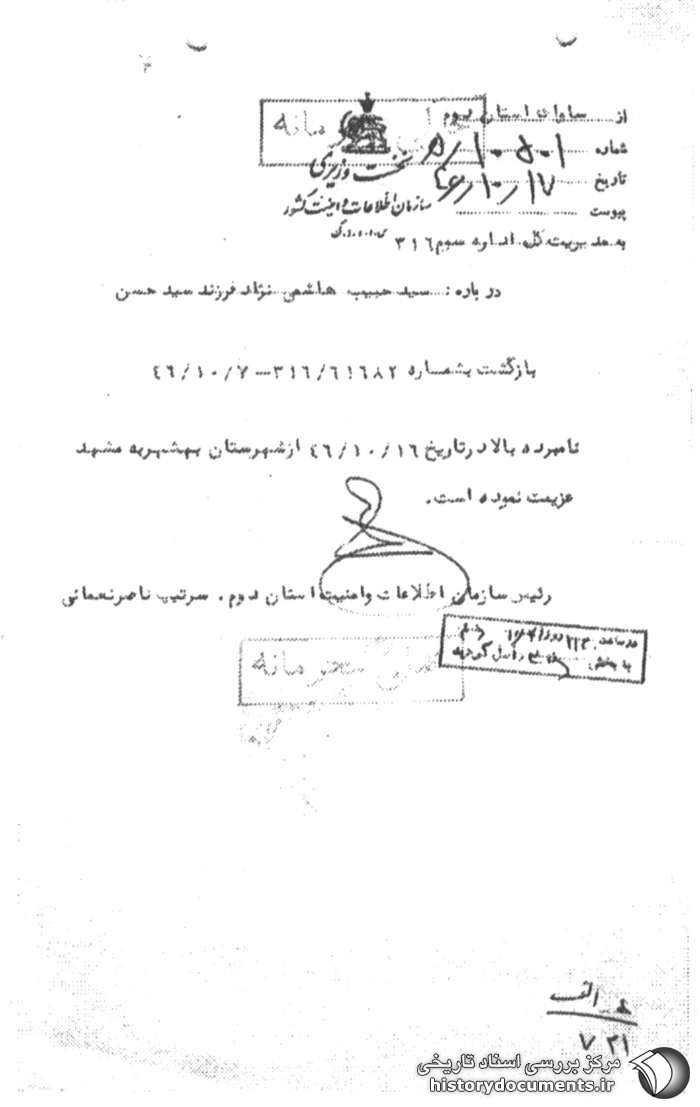 از ساواك استان دوم
شماره ۵/۱۰۵۰۱
تاریخ ۴۶/۱۰/۱۷
پیوست
نخست وزیری
سازمان اطلاعات و امنیت کشور
س.ا.و.ا.ک
به مدیریت کل اداره سوم ۳۱۶
در باره : سید حبیب هاشمی نژاد فرزند سید حسن
بازگشت بشماره ۳۱۶/۶۱۶۸۲ – ۴۶/۱۰/۷
نامبرده بالا در تاریخ ۴۶/۱۰/۱۶ از شهرستان بهشهر به مشهد
عزیمت نموده است.
رئیس سازمان اطلاعات و امنیت استان دوم . سرتیپ ناصر نعمانی
در ساعت روز
به بخش واصل گردید
خیلی محرمانه
الف
۷ ۲۱
مرکز بررسی اسناد تاریخی
historydocuments.ir